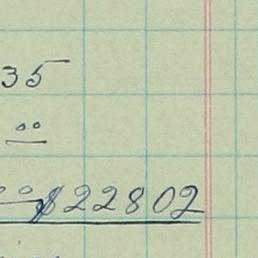 35
00
$22802